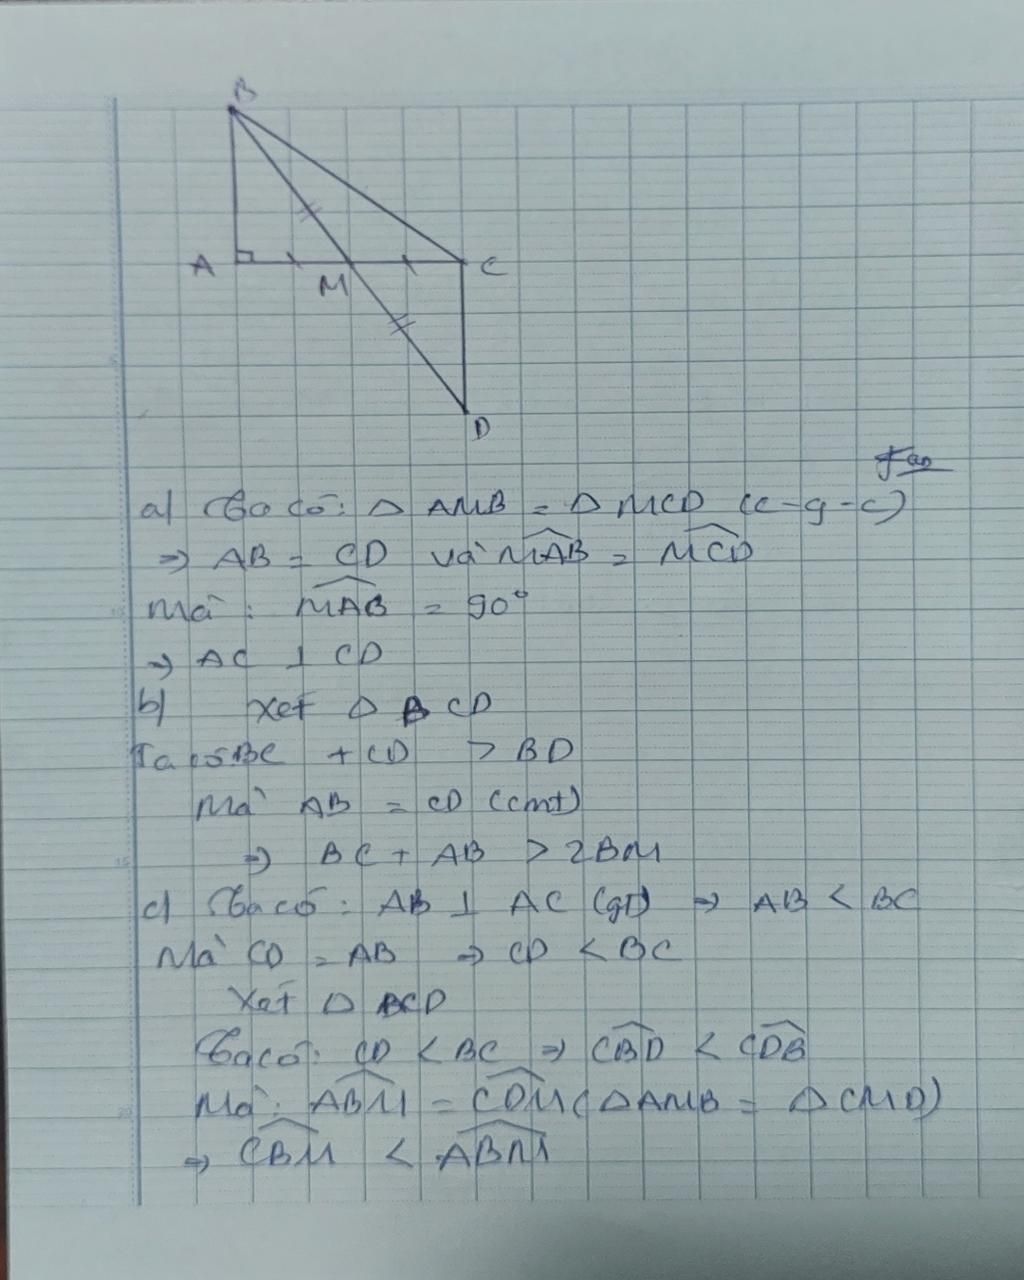 B
A
M
C
D
a) Ta có: △ AMB = △ MCD (c-g-c)
=> AB = CD và \widehat{MAB} = \widehat{MCD}
Mà: \widehat{MAB} = 90°
=> AC ⊥ CD
b) Xét △ BCD
Ta có BC + CD > BD
Mà AB = CD (cmt)
=> BC + AB > 2BM
c) Ta có: AB ⊥ AC (gt) => AB < BC
Mà CD = AB => CD < BC
Xét △ BCD
Ta có: CD < BC => \widehat{CBD} < \widehat{CDB}
Mà: \widehat{ABM} = \widehat{CDM} (△AMB = △CMD)
=> \widehat{CBM} < \widehat{ABM}